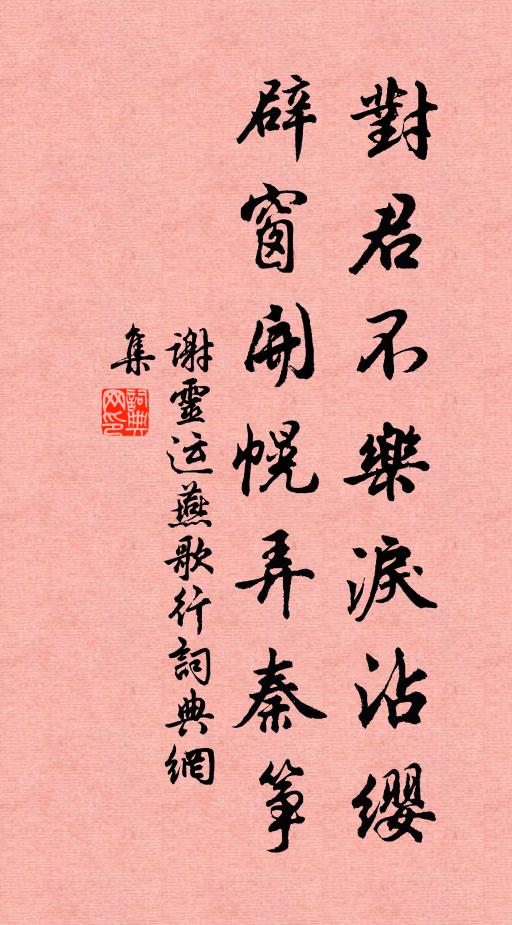 對君不樂淚沾纓
辟窗開幌弄秦箏
謝靈运燕歌行詞典網
集
詞典網印